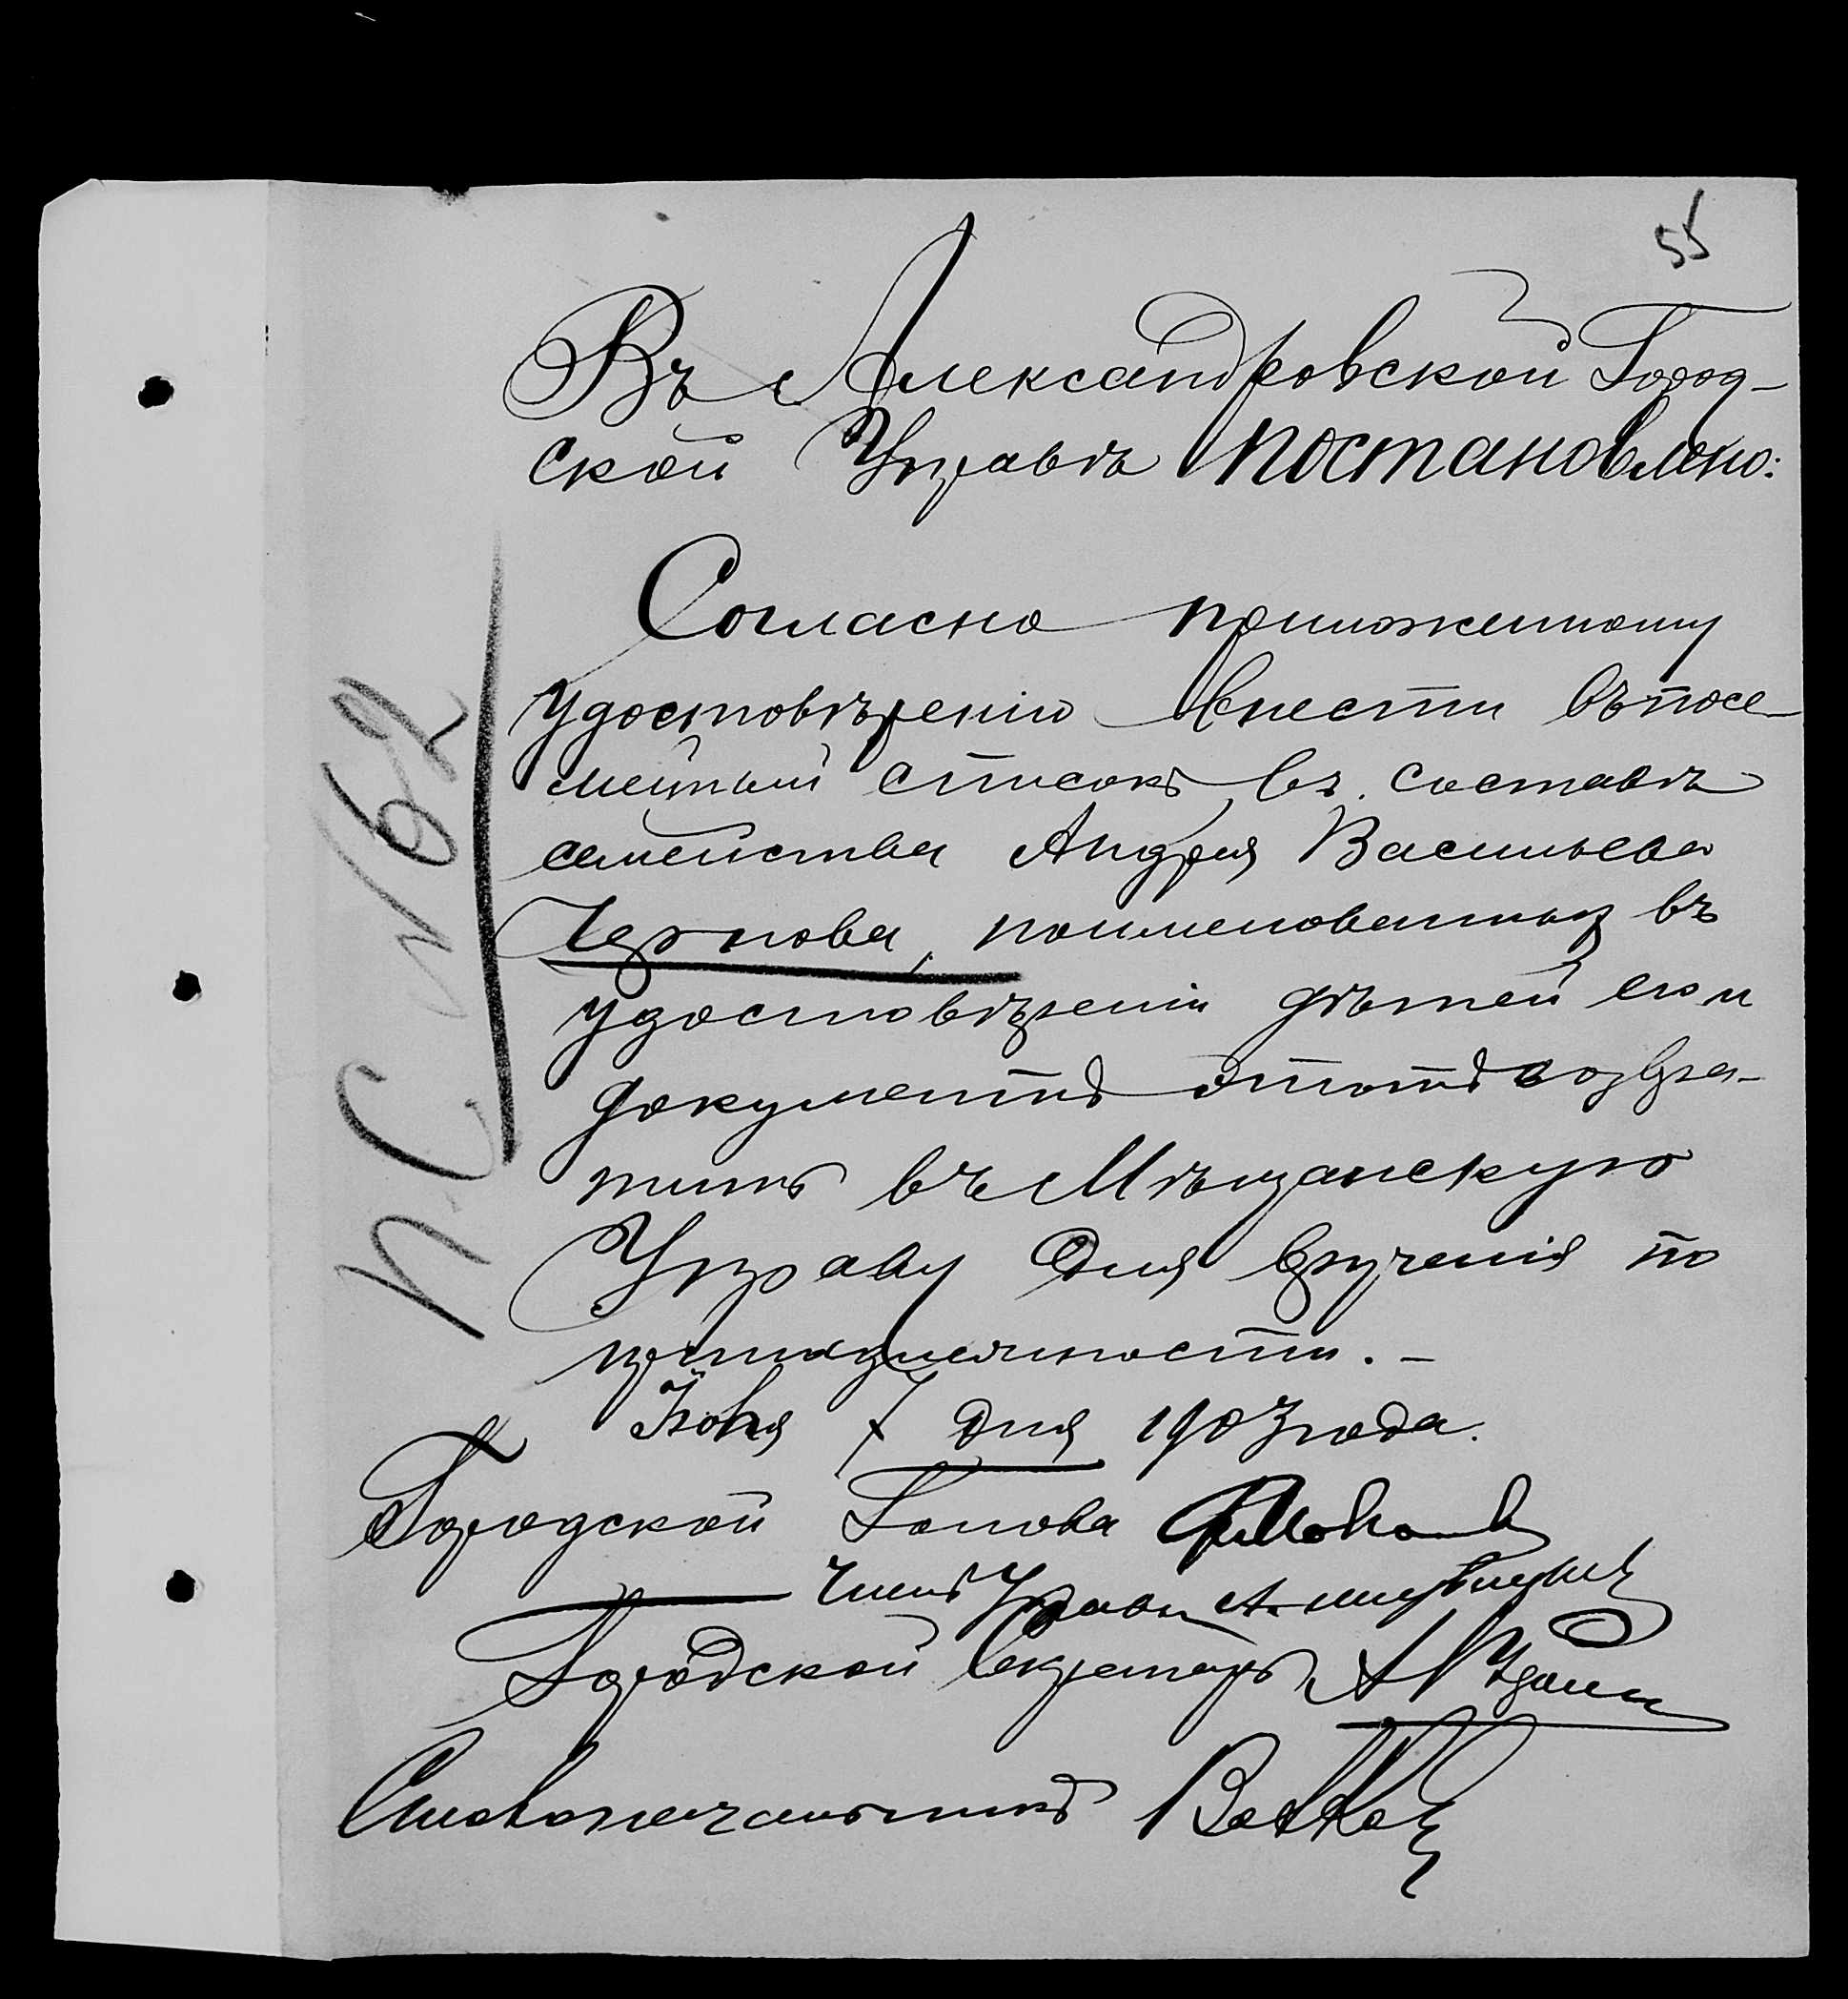 55
Въ Александровской Город-
ской Управѣ постановлено:
Согласно приложенному
удостовѣренію внести въ посе-
мейный списокъ въ составъ
семейства Андрея Васильева
Чернова, поименованныхъ въ
удостовѣреніи дѣтей его и
документъ этотъ возвра-
тить въ Мѣщанскую
Управу для врученія по
принадлежности. -
Іюня 7 дня 1907 года.
Городской Голова
Членъ Управы А.
Городской Секретарь
Столоначальникъ
П С N 62